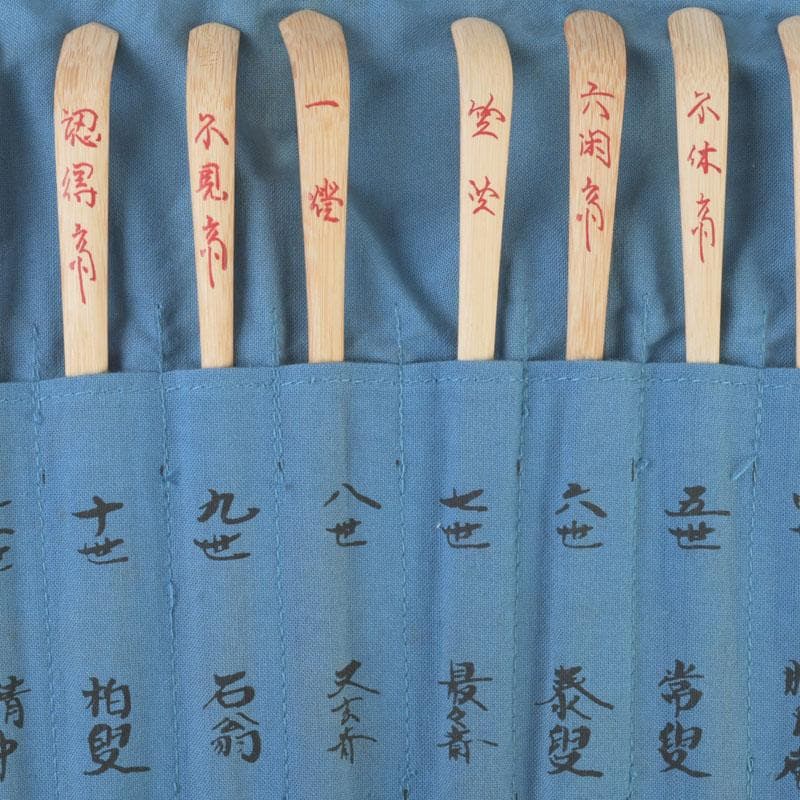 不休斎
六閑斎
竺叟
一燈
不見斎
認得斎
五世
常叟
六世
泰叟
七世
最々斎
八世
又玄斎
九世
石翁
十世
柏叟